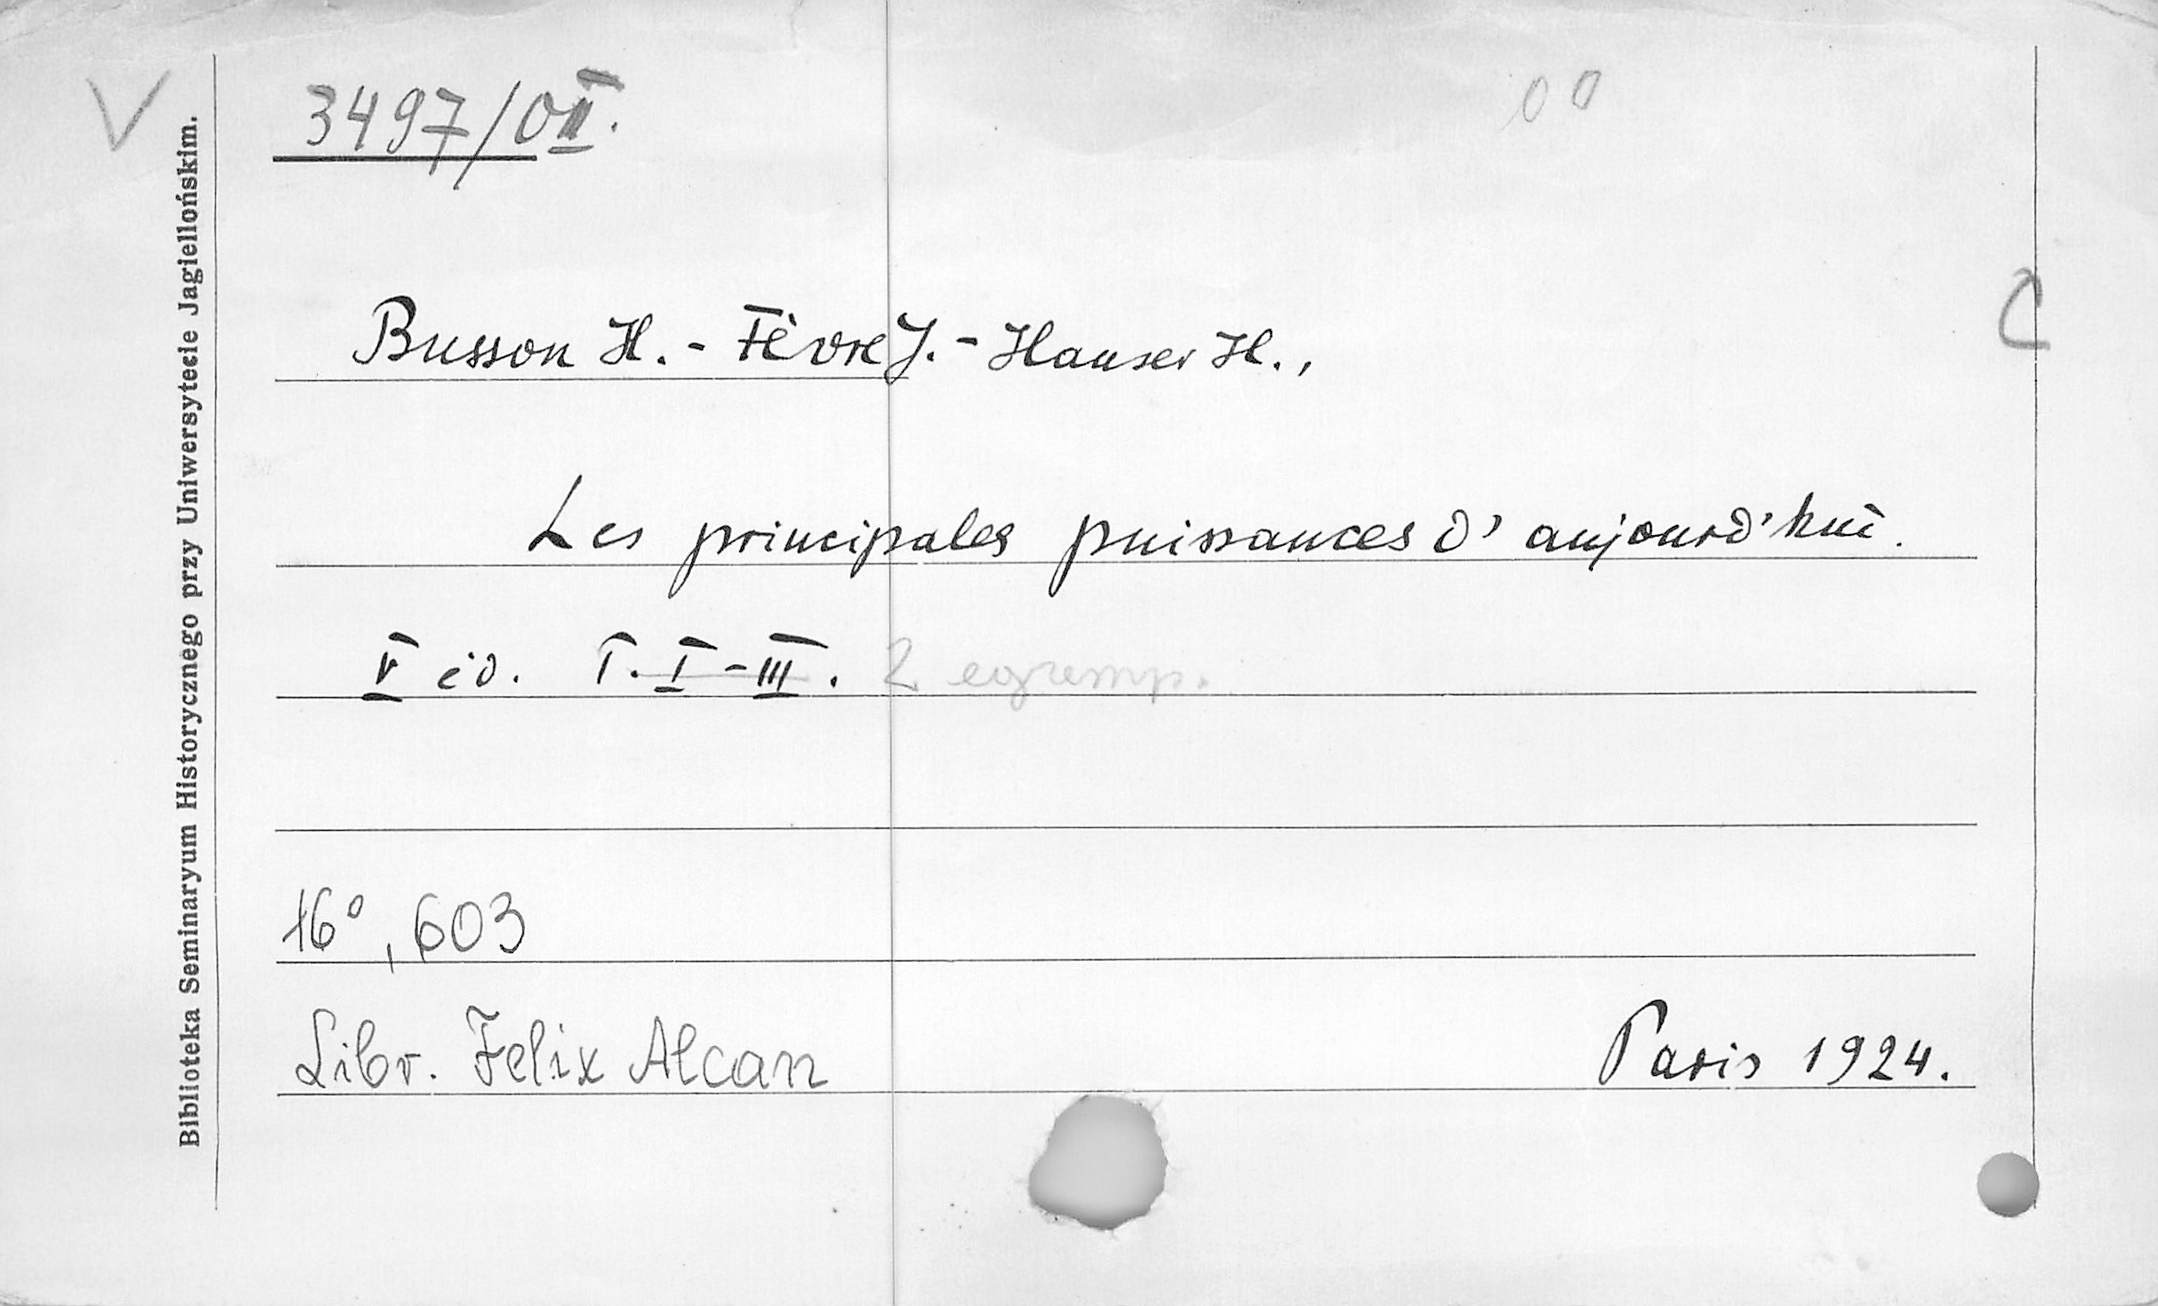 V
3497/OII.
00
C
Busson H. - Fèvre J. - Hauser H.,
Les principales puissances d'aujourd'hui.
V éd. T. I-III. 2 egzemp.
16°, 603
Libr. Felix Alcan
Paris 1924.
Biblioteka Seminaryum Historycznego przy Uniwersytecie Jagiellońskim.